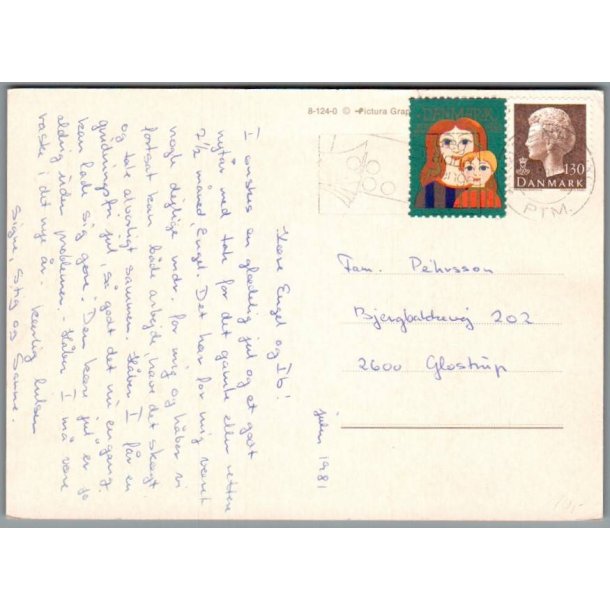 8-124-0 © Pictura Grap
DANMARK
130
DANMARK
PTM.
Kære Engel og Ib!
I ønskes en glædelig jul og et godt
nytår med tak for det gamle eller rettere
2½ måned, Engel. Det har for mig været
nogle dejlige mdr. for mig og håber vi
fortsat kan både arbejde, have det skægt
og tale alvorligt sammen. Håber I får en
jul, så godt det nu engang
kan lade sig gøre. Den kære jul er jo
aldrig uden problemer. - Håber I må være
raske i det nye år. Kærlig hilsen
Signe, Stig og Sanne.
julen 1981
Fam. Pehrsson
Bjergbakkevej 202
2600 Glostrup